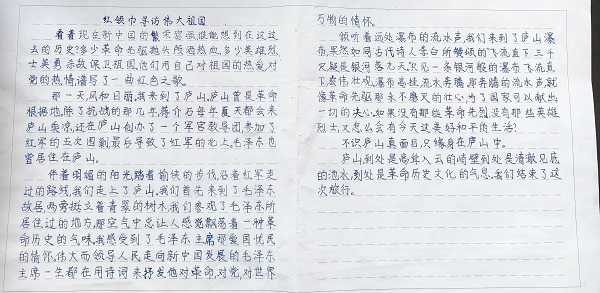 红领巾寻访伟大祖国
看着现在新中国的繁荣富强,谁能想到在这过
去的历史?多少革命先驱抛头颅洒热血,多少英雄烈
士英勇杀敌保卫祖国,他们用自己对祖国的热爱,对
党的热情,谱写了一曲红色之歌。
那一天,风和日丽,我来到了庐山。庐山曾是革命
根据地,除了抗战的那几年,蒋介石每年夏天都会来
庐山乘凉,还在庐山创办了一个军官教导团,参加了
红军的五次围剿,最后导致了红军的北上,毛泽东也
曾居住在庐山。
伴着明媚的阳光,踏着愉快的步伐,沿着红军走
过的路线,我们走上了庐山。我们首先来到了毛泽东
故居,两旁挺立着青翠的树木,我们参观了毛泽东所
居住过的地方,那空气中总让人感觉飘荡着一种革
命历史的气味,我感受到了毛泽东主席那爱国忧民
的情怀,伟大而领导人民走向新中国发展的毛泽东
主席一生都在用诗词来抒发他对革命,对党,对世界
万物的情怀。
倾听着远处瀑布的流水声,我们来到了庐山瀑
布,果然如同古代诗人李白所赞颂的飞流直下三千
尺,疑是银河落九天,只见一条银河般的瀑布飞流直
下,宏伟壮观,瀑布高挂,流水奔腾,那奔腾的流水声,就
像革命先驱那永不磨灭的壮心,为了国家可以献出
一切的决心,如果没有那些革命先烈没有那些英雄
烈士,又怎么会有今天这美好和平的生活?
不识庐山真面目,只缘身在庐山中。
庐山到处是高耸入云的峭壁,到处是清澈见底
的池水,到处是革命历史文化的气息,我们结束了这
次旅行。